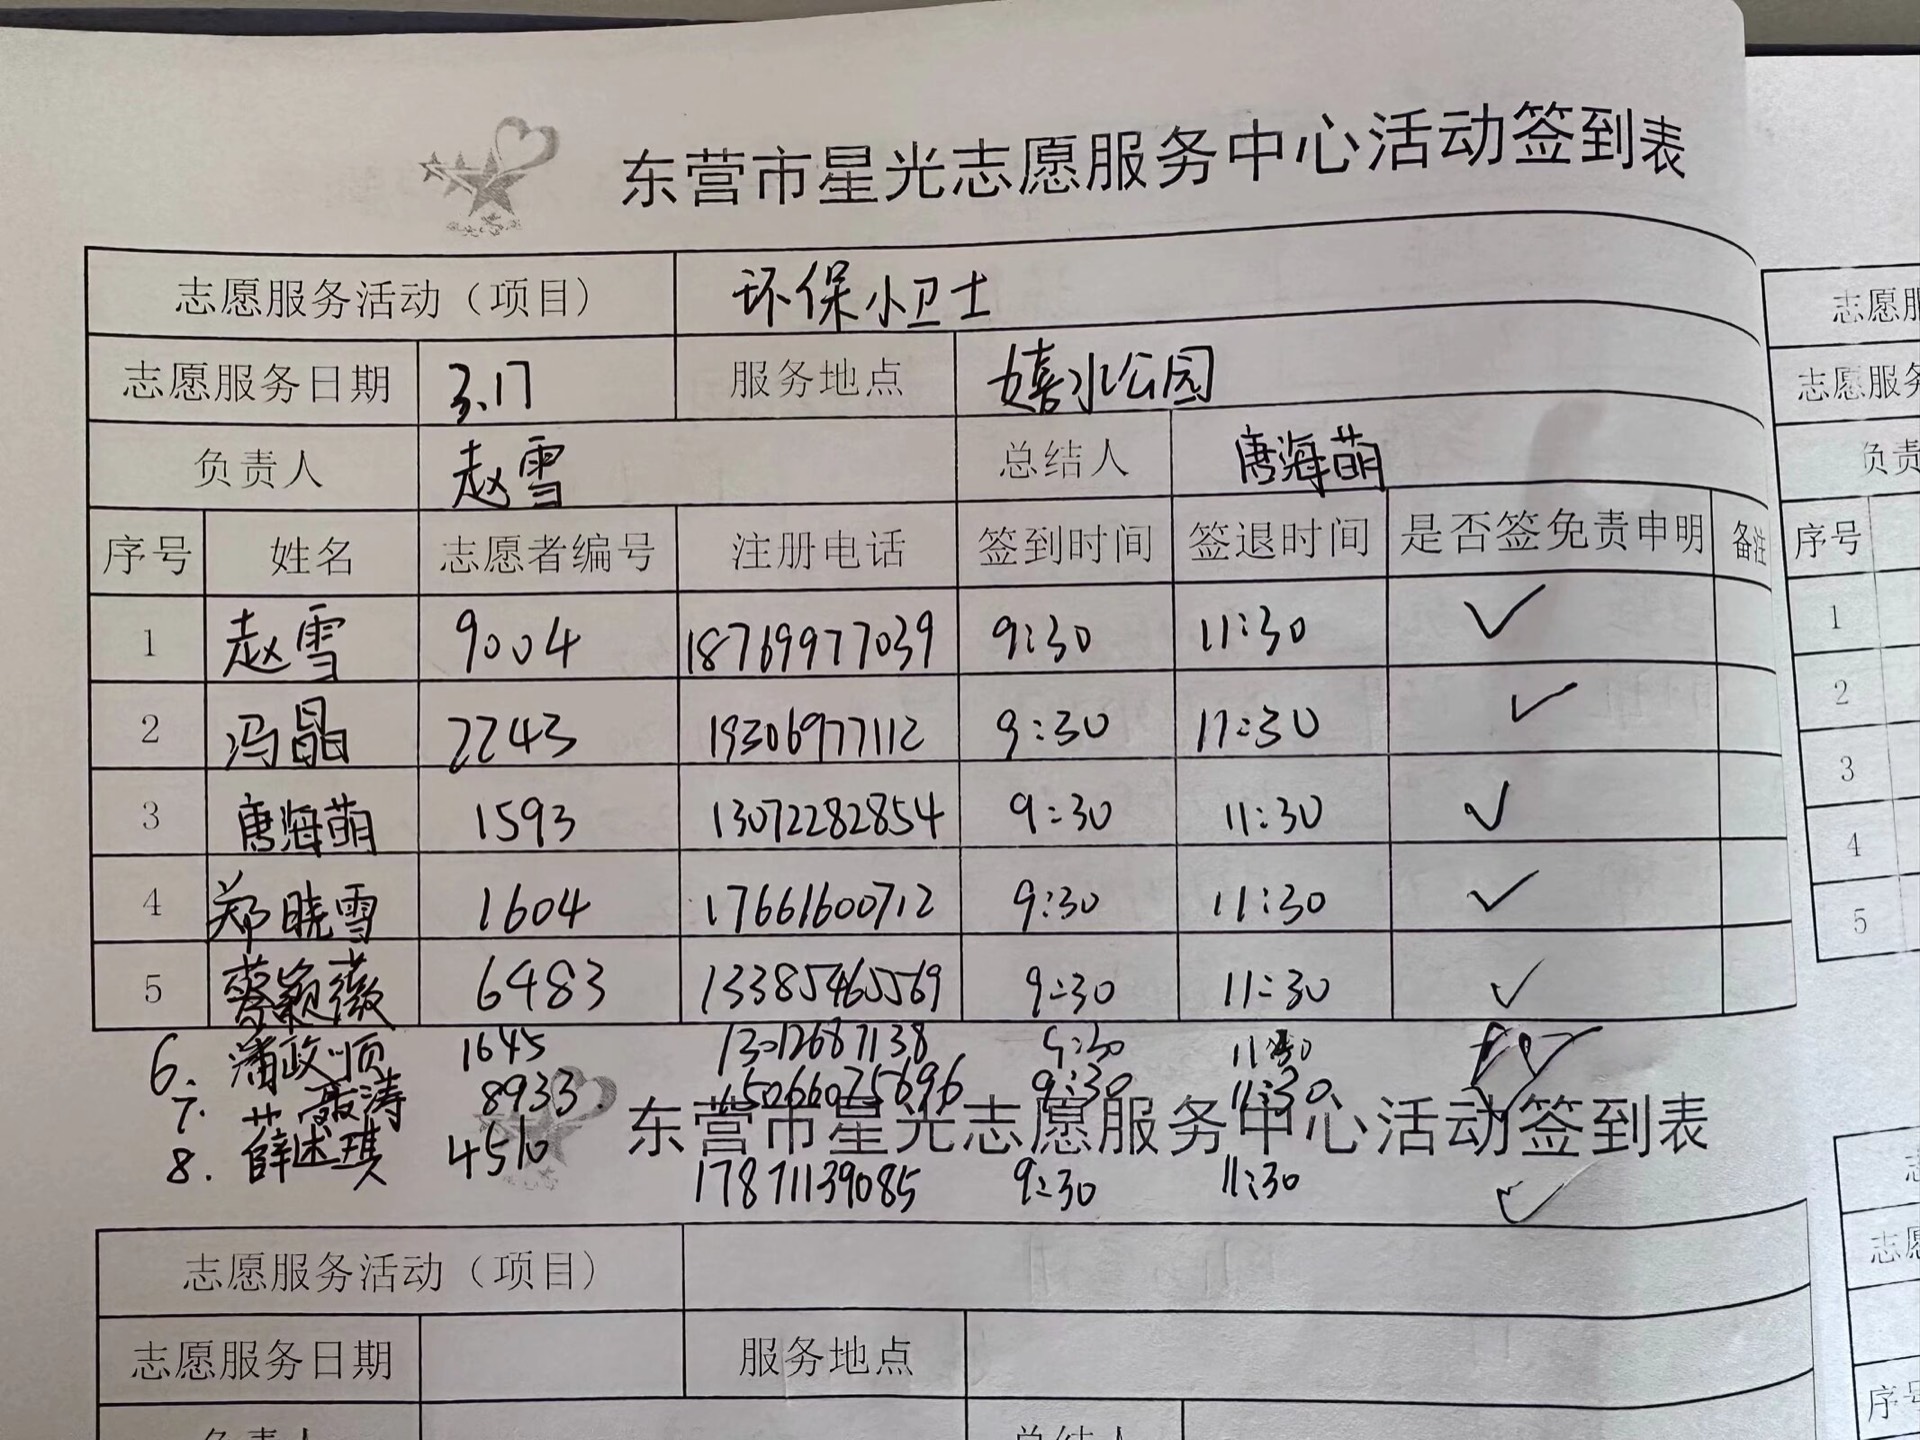 东营市星光志愿服务中心活动签到表
志愿服务活动（项目） 环保小卫士
志愿服务日期 3.17 服务地点 嬉水公园
负责人 赵雪 总结人 唐海萌
序号 姓名 志愿者编号 注册电话 签到时间 签退时间 是否签免责申明 备注
1 赵雪 9004 18769977039 9:30 11:30 ✓
2 冯晶 2243 19306977112 9:30 11:30 ✓
3 唐海萌 1593 13072282854 9:30 11:30 ✓
4 郑晓雪 1604 17661600712 9:30 11:30 ✓
5 蔡颖薇 6483 13385465569 9:30 11:30 ✓
6. 政顺 1645 13012687138 9:30 11:30
7. 聂涛 8933 15066075696 9:30 11:30
8. 薛述琪 4510 17871139085 9:30 11:30 ✓
东营市星光志愿服务中心活动签到表
志愿服务活动（项目）
志愿服务日期 服务地点
负责人 总结人
志愿服
志愿服务
负责
序号
1
2
3
4
5
志愿
序号